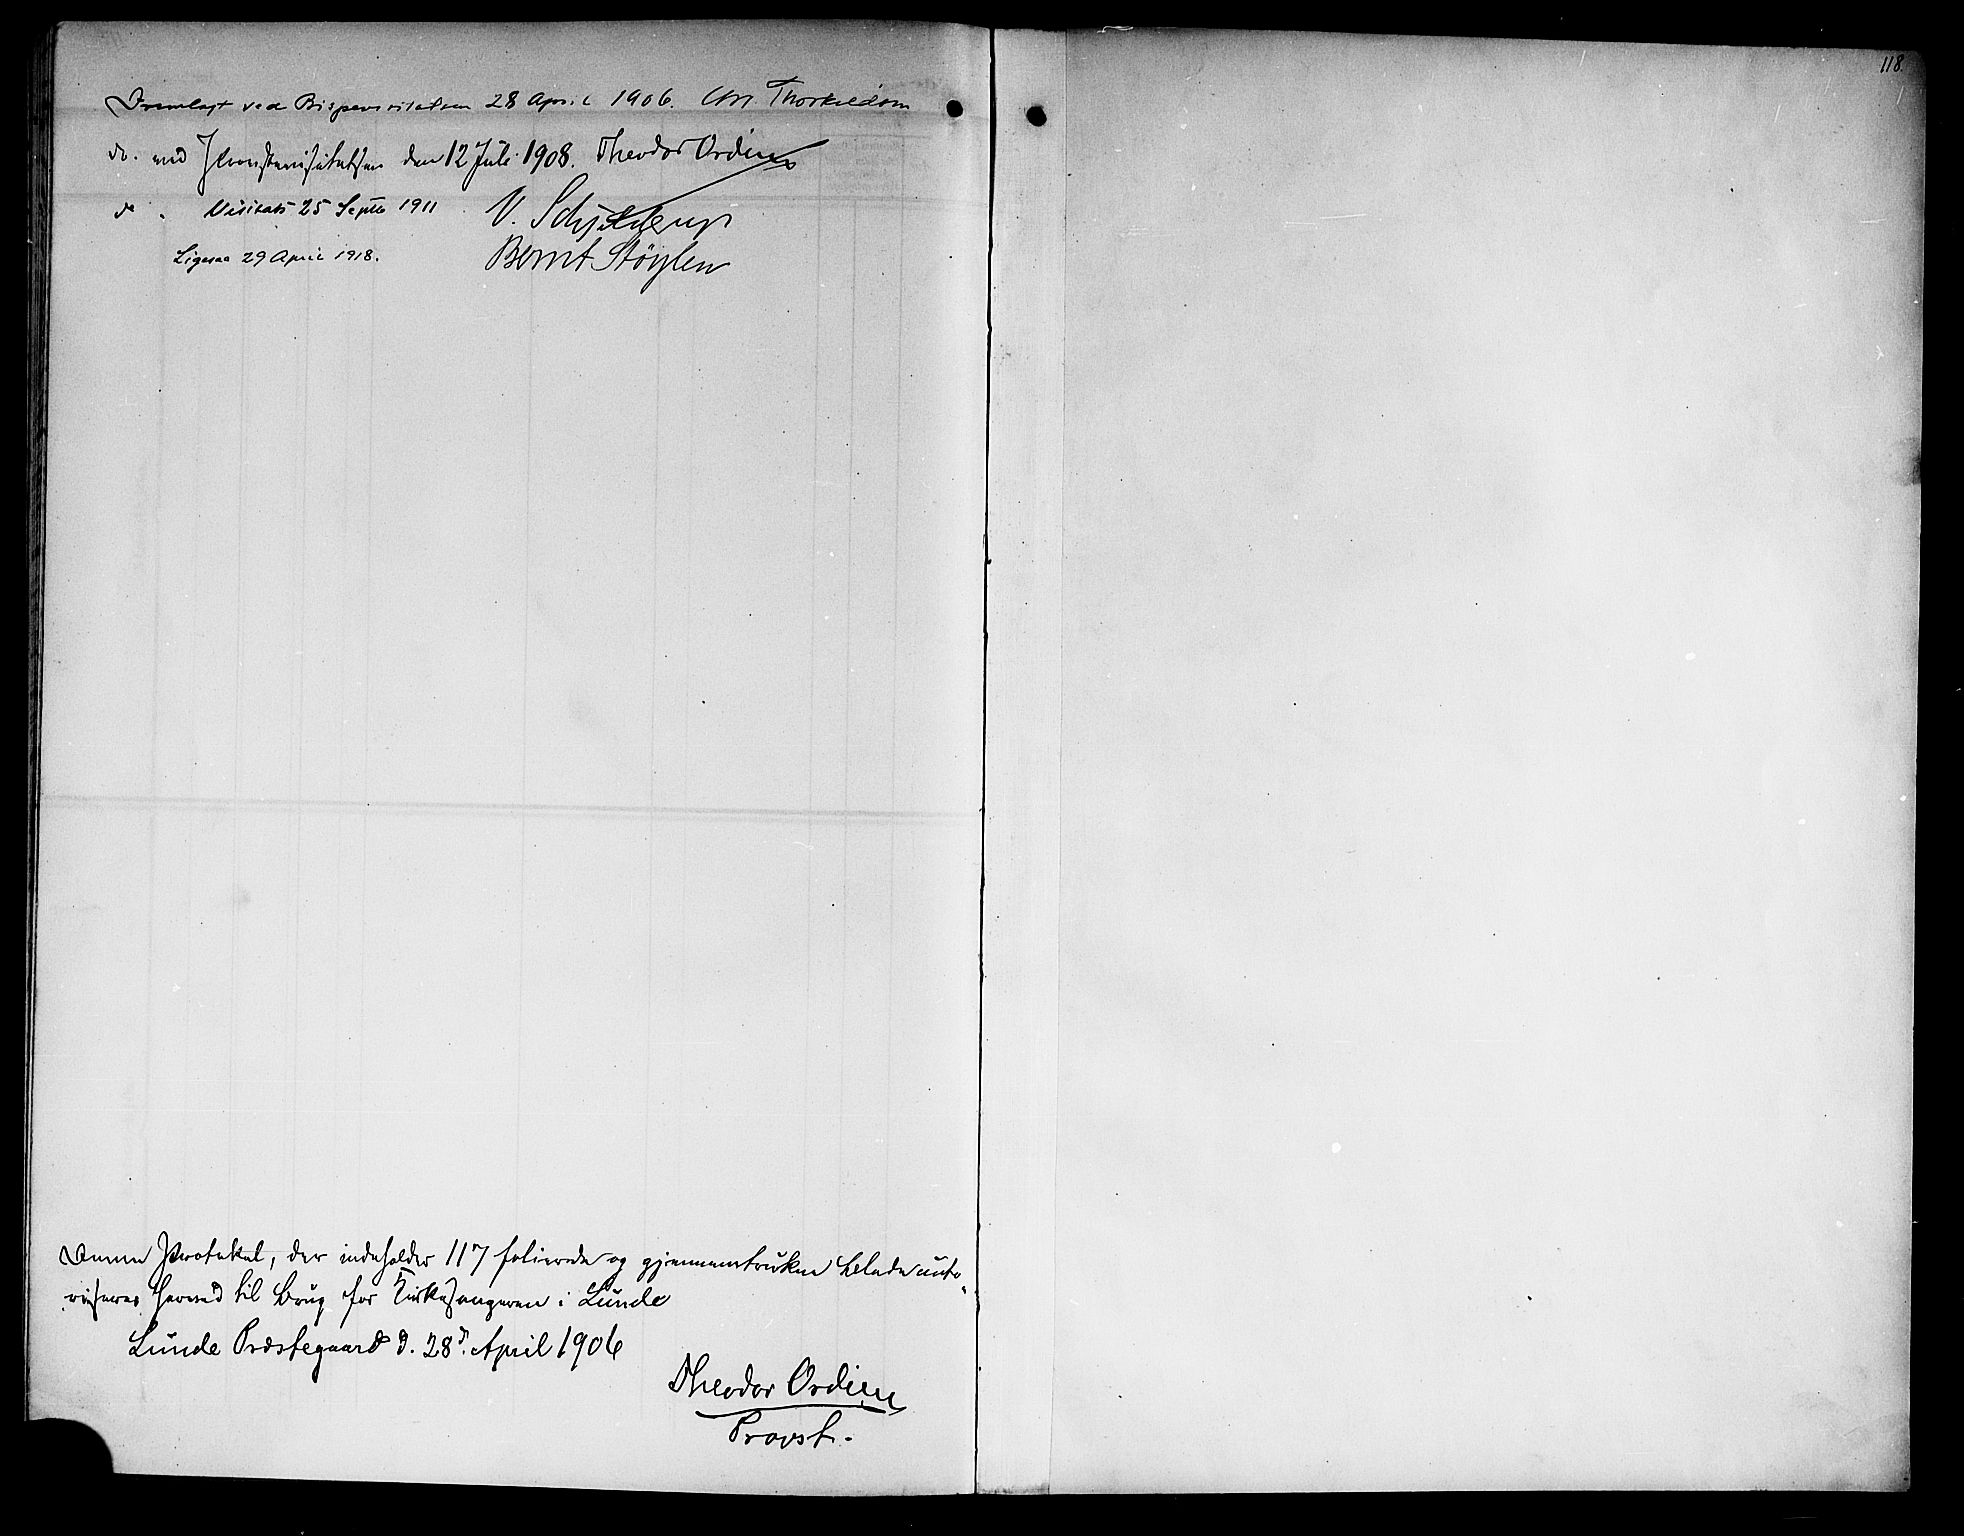 Fremlagt ved Bispevisitatsen 28 April 1906. Chr. Thorkildsen
do. ved Provstevisitatsen den 12 Juli 1908. Theodor Ording
do. Visitats 25 Septb 1911 V. Schjelderup
Ligesaa 29 April 1918. Bernt Støylen
Denne Protokol, der indeholder 117 folierede og gjennemtrukne Blade auto-
riseres herved til Brug for Kirkesangeren i Lunde
Lunde Præstegaard d. 28d. April 1906
Theodor Ording
Provst.
118